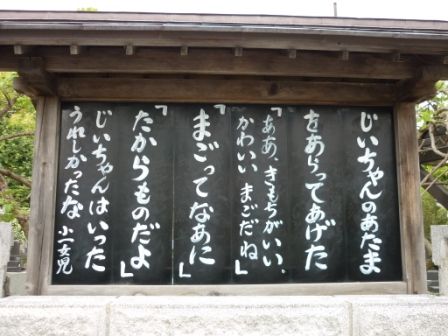 じいちゃんのあたま
をあらってあげた
「ああ、きもちがいい、
かわいい まごだね」
「まごってなあに」
「たからものだよ」
じいちゃんはいった
うれしかったな 小一女児